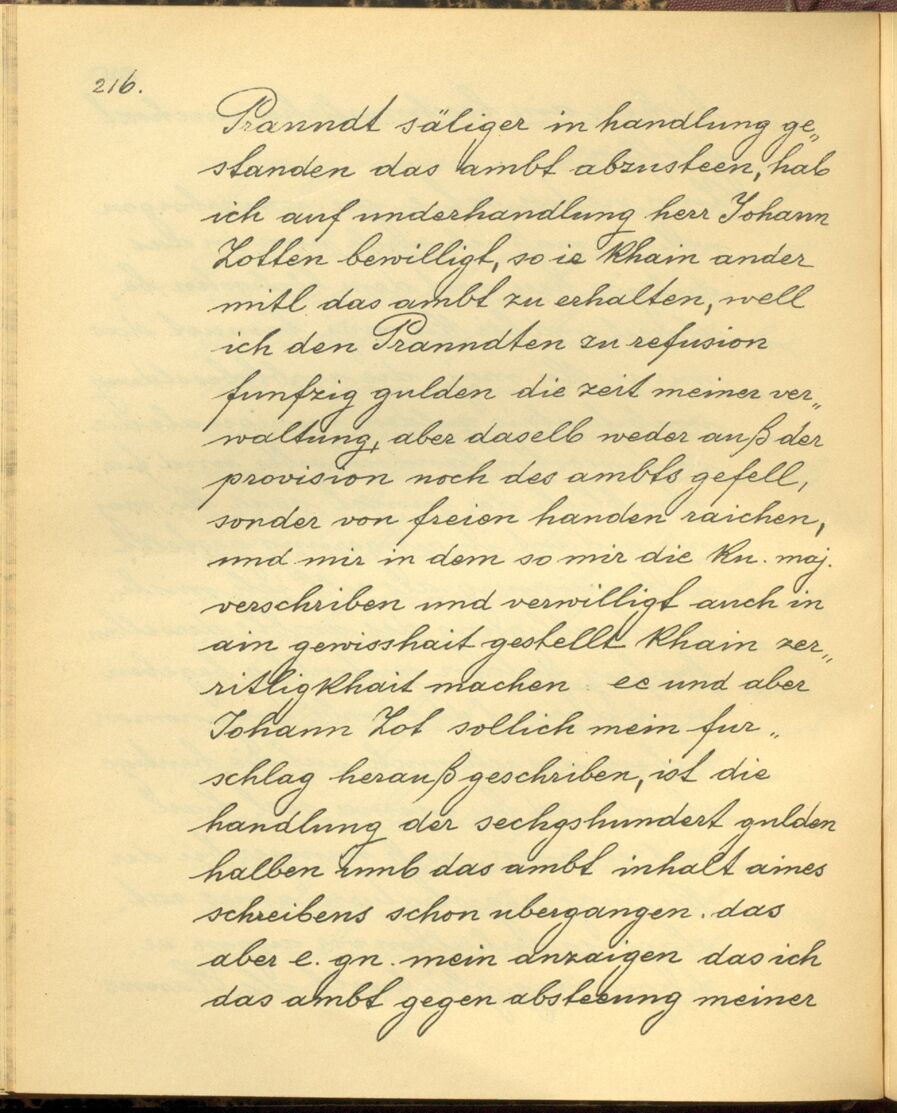 216.
Pranndt säliger in handlung ge„
standen das ambt abzusteen, hab
ich auf underhandlung herr Johann
Zotten bewilligt, so ie khain ander
mitl das ambt zu erhalten, well
ich den Pranndten zu refusion
funfzig gulden die zeit meiner ver„
waltung, aber daselb weder auß der
provision noch des ambts gefell,
sonder von freien handen raichen,
und mir in dem so mir die kn. maj.
verschriben und verwilligt auch in
ain gewisshait gestellt khain zer„
ritligkhait machen : ec und aber
Johann Zot sollich mein fur„
schlag herauß geschriben, ist die
handlung der sechgshundert gulden
halben umb das ambt inhalt aines
schreibens schon ubergangen. das
aber e. gn. mein anzaigen das ich
das ambt gegen absteeung meiner